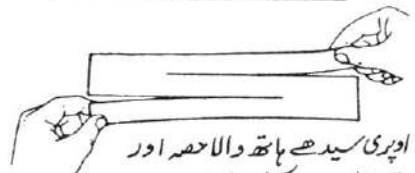 اوپری سیدھے ہاتھ والا حصہ اور